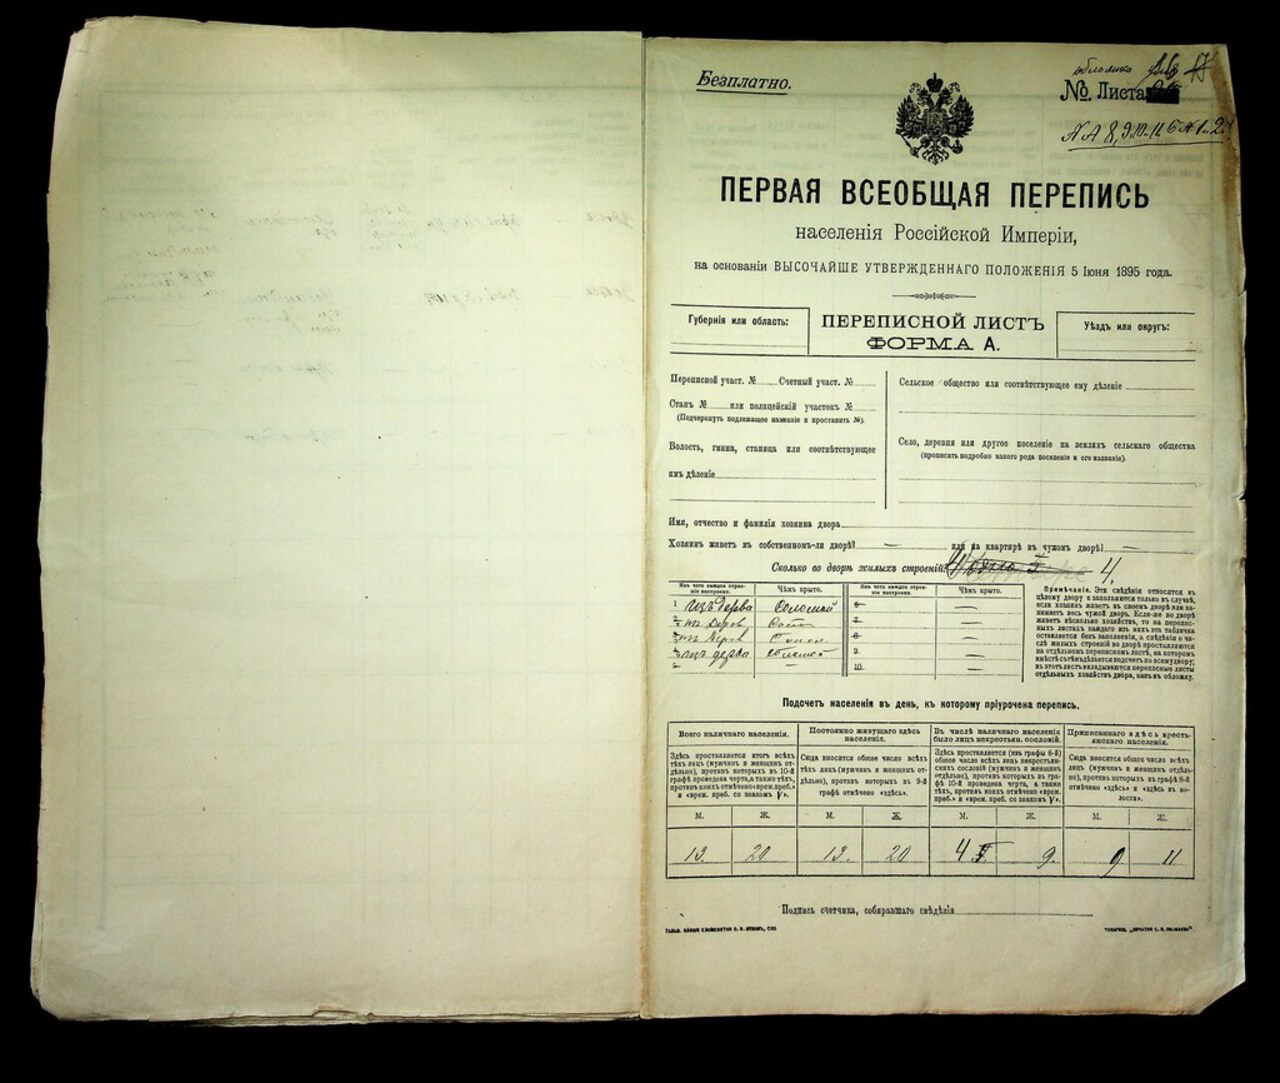 Безплатно.
№. Листа
ПЕРВАЯ ВСЕОБЩАЯ ПЕРЕПИСЬ
населенія Россійской Имперіи,
на основаніи ВЫСОЧАЙШЕ УТВЕРЖДЕННАГО ПОЛОЖЕНІЯ 5 Іюня 1895 года.
Губернія или область:
ПЕРЕПИСНОЙ ЛИСТЪ
ФОРМА А.
Уѣздъ или округъ:
Переписной участ. № Счетный участ. №
Станъ № или полицейскій участокъ №
(Подчеркнуть подлежащее названіе и проставить №).
Волость, гмина, станица или соотвѣтствующее
имъ дѣленіе
Сельское общество или соотвѣтствующее ему дѣленіе
Село, деревня или другое поселеніе на земляхъ сельскаго общества
(прописать подробно какого рода поселеніе и его названіе).
Имя, отчество и фамилія хозяина двора
Хозяинъ живетъ въ собственномъ-ли дворѣ? — или на квартирѣ въ чужомъ дворѣ? —
Сколько во дворѣ жилыхъ строеній? 4,
Изъ чего каждое строеніе построено.
Чѣмъ крыто.
Изъ чего каждое строеніе построено.
Чѣмъ крыто.
1 изъ дерва Соломой
9. —
10. —
Примѣчаніе. Эти свѣдѣнія относятся къ
цѣлому двору и заполняются только въ случаѣ,
если хозяинъ живетъ въ своемъ дворѣ или за-
нимаетъ весь чужой дворъ. Если-же во дворѣ
живетъ нѣсколько хозяйствъ, то на перепис-
ныхъ листахъ каждаго изъ нихъ эта табличка
оставляется безъ заполненія, а свѣдѣнія о чи-
слѣ жилыхъ строеній во дворѣ проставляются
на отдѣльномъ переписномъ листѣ, на которомъ
вмѣстѣ съ тѣмъ дѣлается подсчетъ по всему двору;
въ этотъ листъ вкладываются переписные листы
отдѣльныхъ хозяйствъ двора, какъ въ обложку.
Подсчетъ населенія въ день, къ которому пріурочена перепись.
Всего наличнаго населенія.
Здѣсь проставляется итогъ всѣхъ
тѣхъ лицъ (мужчинъ и женщинъ от-
дѣльно), противъ которыхъ въ 10-й
графѣ проведена черта, а также тѣхъ,
противъ коихъ отмѣчено «врем. преб.»
и «врем. преб. со знакомъ V».
Постоянно живущаго здѣсь
населенія.
Сюда вносится общее число всѣхъ
тѣхъ лицъ (мужчинъ и женщинъ от-
дѣльно), противъ которыхъ въ 9-й
графѣ отмѣчено «здѣсь».
Въ числѣ наличнаго населенія
было лицъ некрестьян. сословій.
Здѣсь проставляется (изъ графы 6-й)
общее число всѣхъ лицъ некрестьян-
скихъ сословій (мужчинъ и женщинъ
отдѣльно), противъ которыхъ въ гра-
фѣ 10-й проведена черта, а также
тѣхъ, противъ коихъ отмѣчено «врем.
преб.» и «врем. преб. со знакомъ V».
Приписаннаго здѣсь кресть-
янскаго населенія.
Сюда вносится общее число всѣхъ
лицъ (мужчинъ и женщинъ отдѣль-
но), противъ которыхъ въ графѣ 8-й
отмѣчено «здѣсь» и «здѣсь въ во-
лости».
М. Ж. М. Ж. М. Ж. М. Ж.
13. 20 13. 20 4 9. 9 11
Подпись счетчика, собиравшаго свѣдѣнія